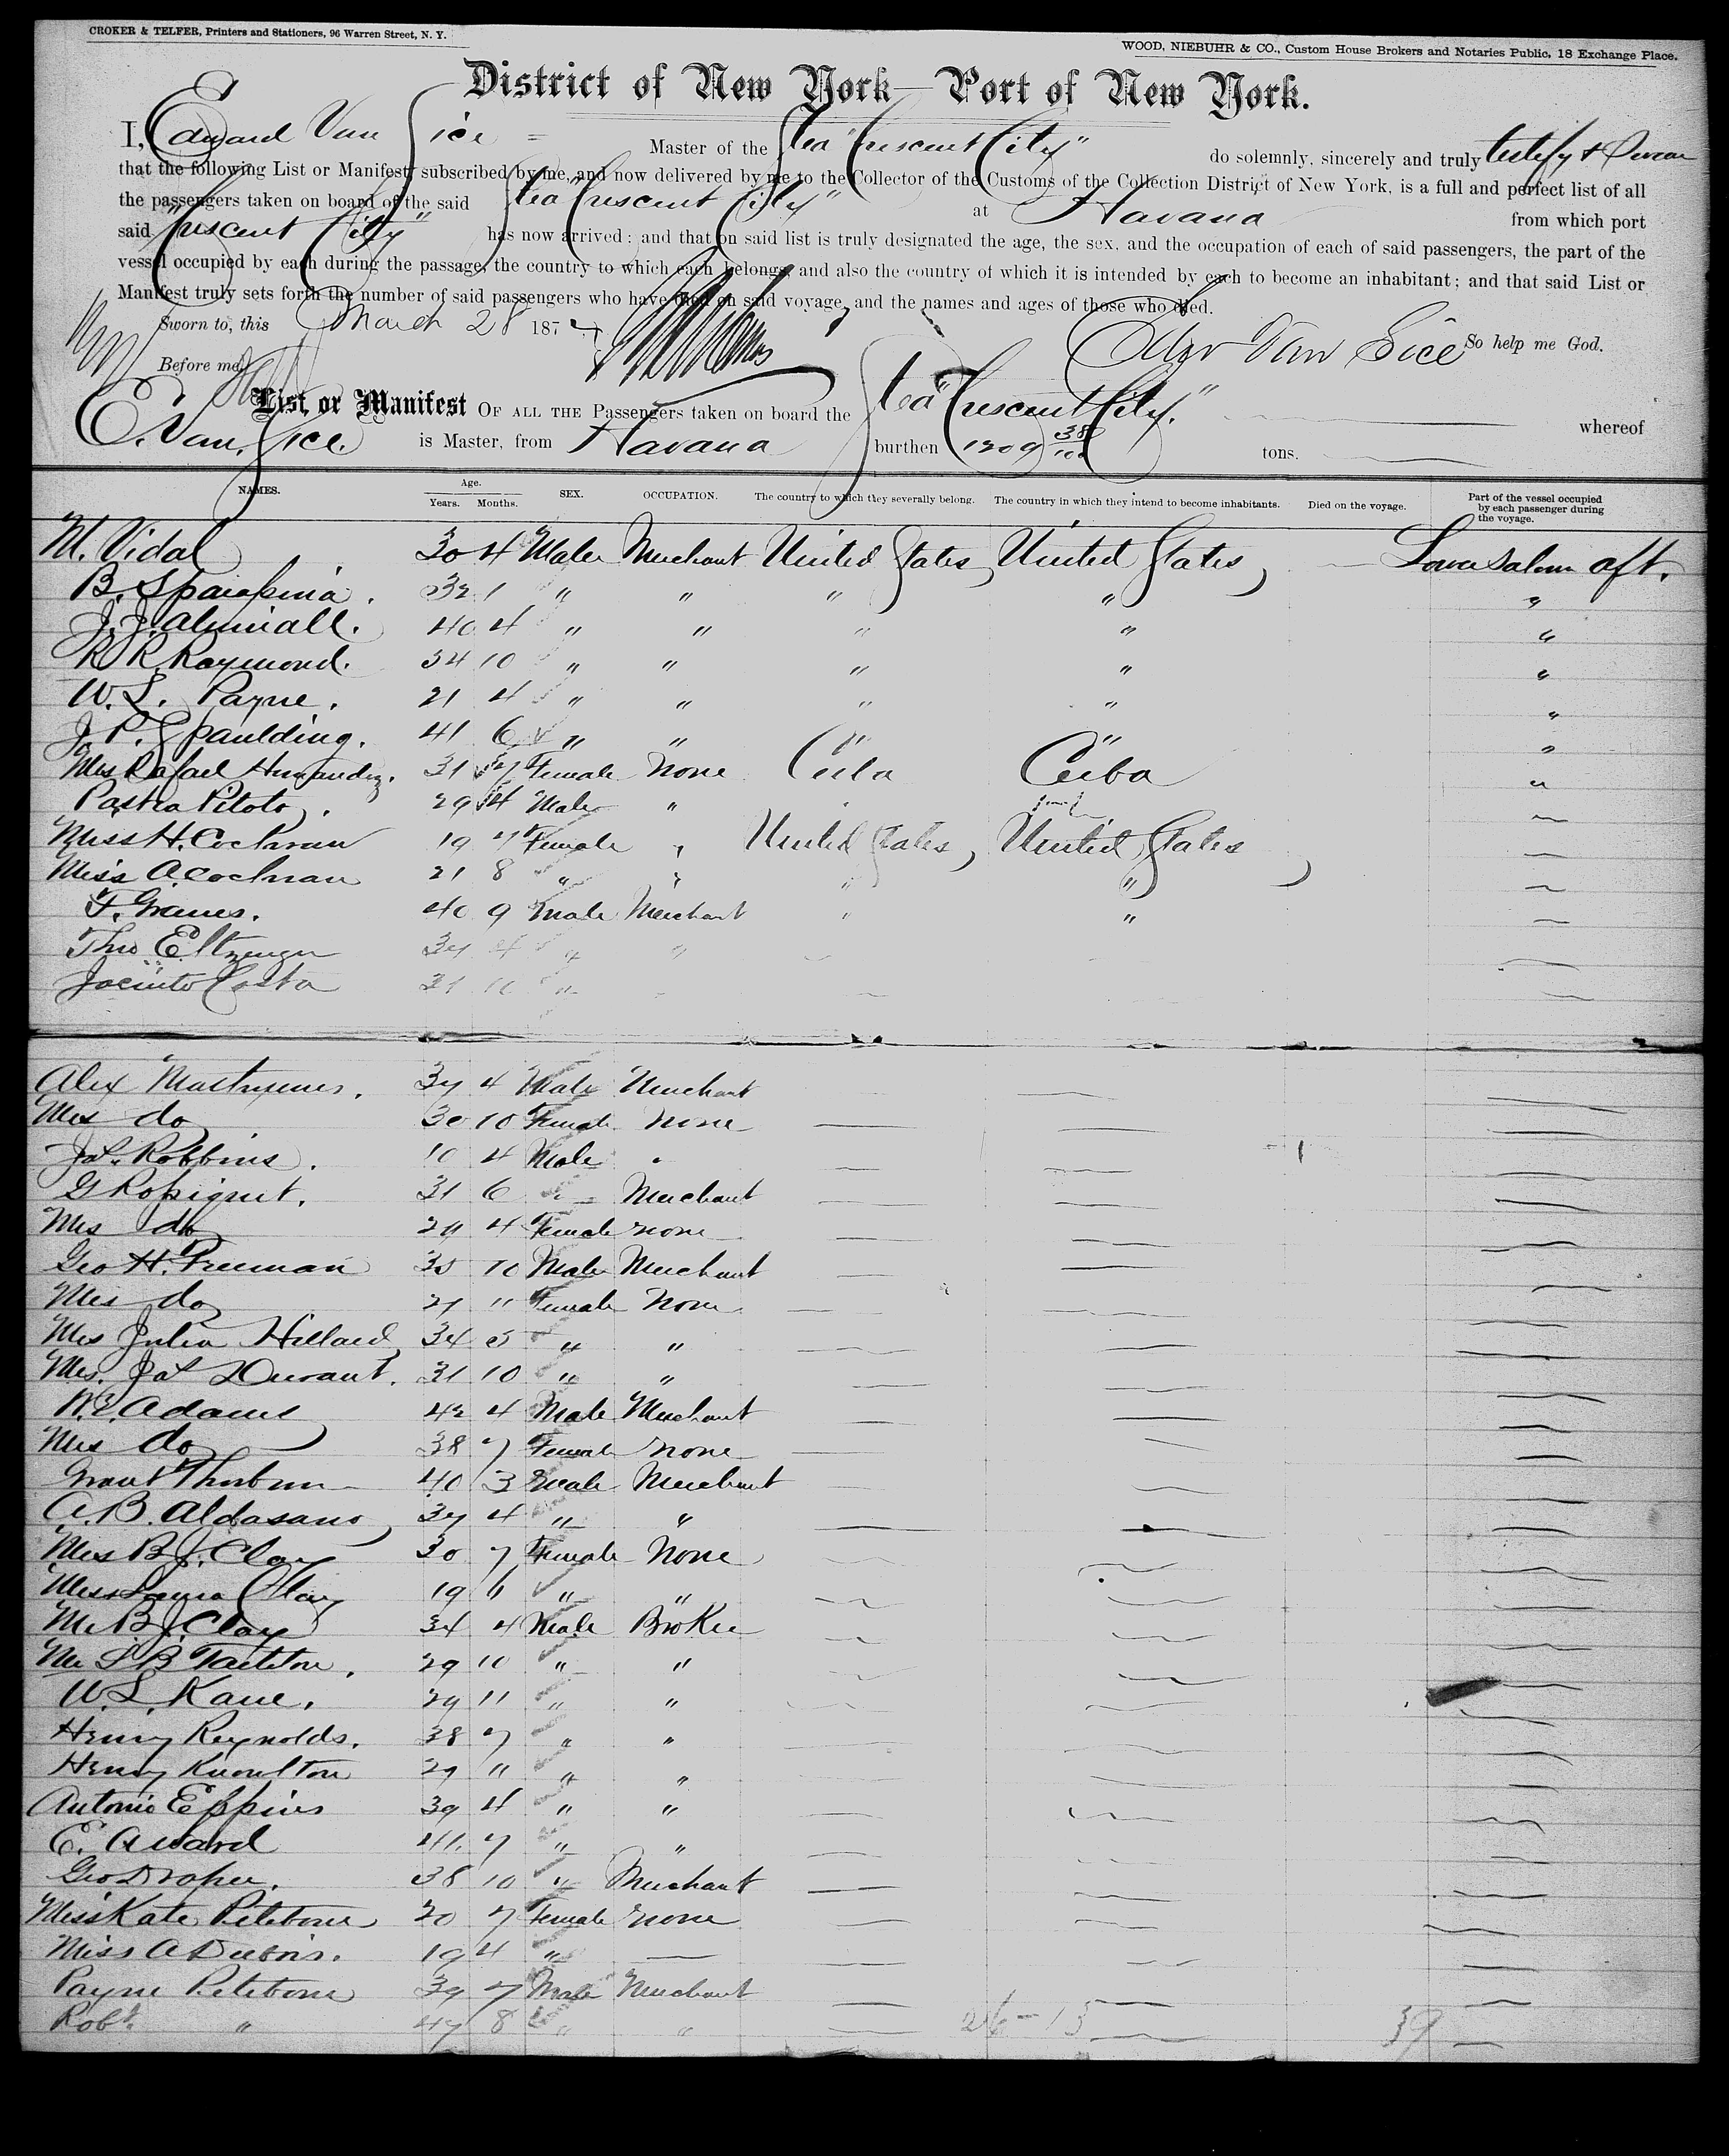 CROKER & TELFER, Printers and Stationers, 96 Warren Street, N. Y.
WOOD, NIEBUHR & CO., Custom House Brokers and Notaries Public, 18 Exchange Place.
District of New York—Port of New York.
I, Edward Van Sice = Master of the Stea "Crescent City" do solemnly, sincerely and truly testify & swear
that the following List or Manifest, subscribed by me, and now delivered by me to the Collector of the Customs of the Collection District of New York, is a full and perfect list of all
the passengers taken on board of the said Stea "Crescent City" at Havana from which port
said "Crescent City" has now arrived: and that on said list is truly designated the age, the sex, and the occupation of each of said passengers, the part of the
vessel occupied by each during the passage, the country to which each belongs, and also the country of which it is intended by each to become an inhabitant; and that said List or
Manifest truly sets forth the number of said passengers who have died on said voyage, and the names and ages of those who died.
Sworn to, this March 28 187
Edw Van Sice So help me God.
Before me,
List or Manifest OF ALL THE Passengers taken on board the Stea "Crescent City." whereof
E. Van Sice. is Master, from Havana burthen 1209 38/100 tons.
NAMES. Age. Years. Months. SEX. OCCUPATION. The country to which they severally belong. The country in which they intend to become inhabitants. Died on the voyage. Part of the vessel occupied by each passenger during the voyage.
M. Vidal 30 4 Male Merchant United States, United States, Lower Saloon aft.
B. 32 1 " " " " "
J. J. 40 4 " " " " "
R R. Raymond. 34 10 " " " " "
W. L. Payne. 21 4 " " " " "
J. P. Spaulding. 41 6 " " " " "
Mrs Rafael Hernandez. 31 7 Female None Cuba Cuba "
29 4 Male " "
Miss H. Cochran 19 7 Female " United States, United States
Miss A. Cochran 21 8 " " " "
F. Graves. 40 9 Male Merchant " "
Theo 34 4 " "
Jacinto Costa 31 "
Alex 37 4 Male Merchant
Mrs do 30 10 Female None
Jas. Robbins. 10 4 Male "
G 31 6 Merchant
Mrs do 29 4 Female None
Geo H. Freeman 35 10 Male Merchant
Mrs do 27 " Female None
Mrs Julia Hillard, 34 5 " "
Mrs. Jas Durant. 31 10 " "
Adams 42 4 Male Merchant
Mrs do 38 7 Female None
Grant Thorburn 40 3 Male Merchant
A. B. Aldasano, 37 4 " "
Mrs B J. Clay 30 7 Female None
Miss Clay 19 6 " "
Mr B J. Clay 34 4 Male Broker
Mr S B Tarleton. 29 10 " "
W. L. Kane. 29 11 " "
Henry Reynolds. 38 7 " "
Henry Knoulton 29 11 " "
Antonio 39 4 " "
E. Award 41. 7 " "
Geo Draper. 38 10 " Merchant
Miss Kate Petebone 20 7 Female None
Miss A Dubois. 19 4 "
Payne Petebone 39 7 Male Merchant
Robt. " 47 8 " "
26-13 39